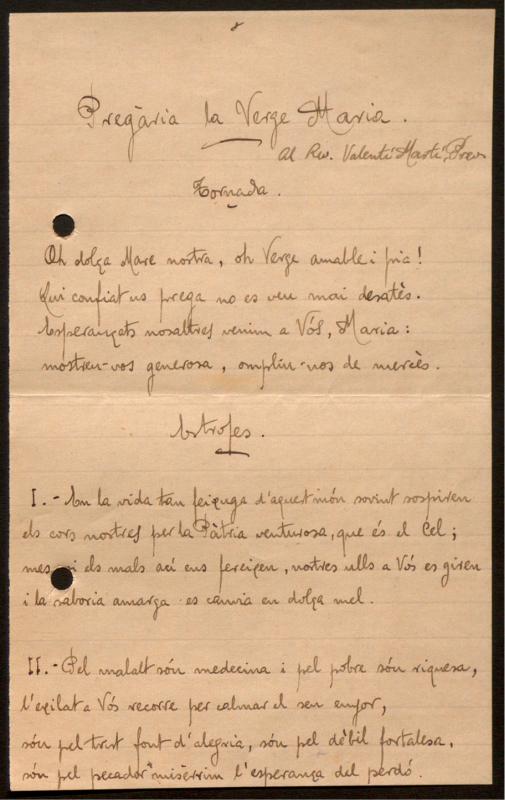 Pregària la Verge Maria.
Al Rev. Valentí Martí, Prev.
Tornada.
Oh dolça Mare nostra, oh Verge amable i pia!
Qui confiat us prega no es veu mai desatès.
Esperançats nosaltres venim a Vós, Maria:
mostreu-vos generosa, ompliu-nos de mercès.
Estrofes.
I.- En la vida tan feixuga d'aquest món sovint sospiren
els cors nostres per la Pàtria venturosa, que és el Cel;
mes si els mals ací ens fereixen, nostres ulls a Vós es giren
i la saboria amarga es canvia en dolça mel.
II.- Pel malalt són medecina i pel pobre són riquesa,
l'exilat a Vós recorre per calmar el seu enyor,
són pel trist font d'alegria, són pel dèbil fortalesa,
són pel pecador misèrrim l'esperança del perdó.